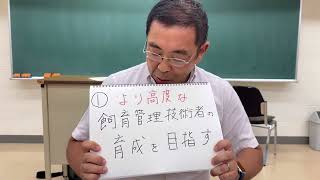 ① より高度な
飼育管理技術者の
育成を目指す